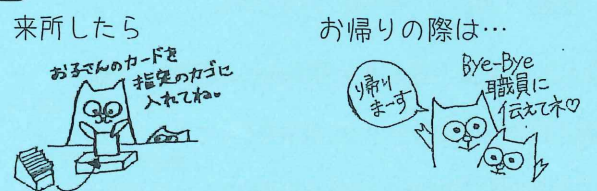 来所したら
お子さんのカードを
指定のカゴに
入れてね♥
お帰りの際は…
帰り
まーす
Bye-Bye
職員に
伝えてネ♡